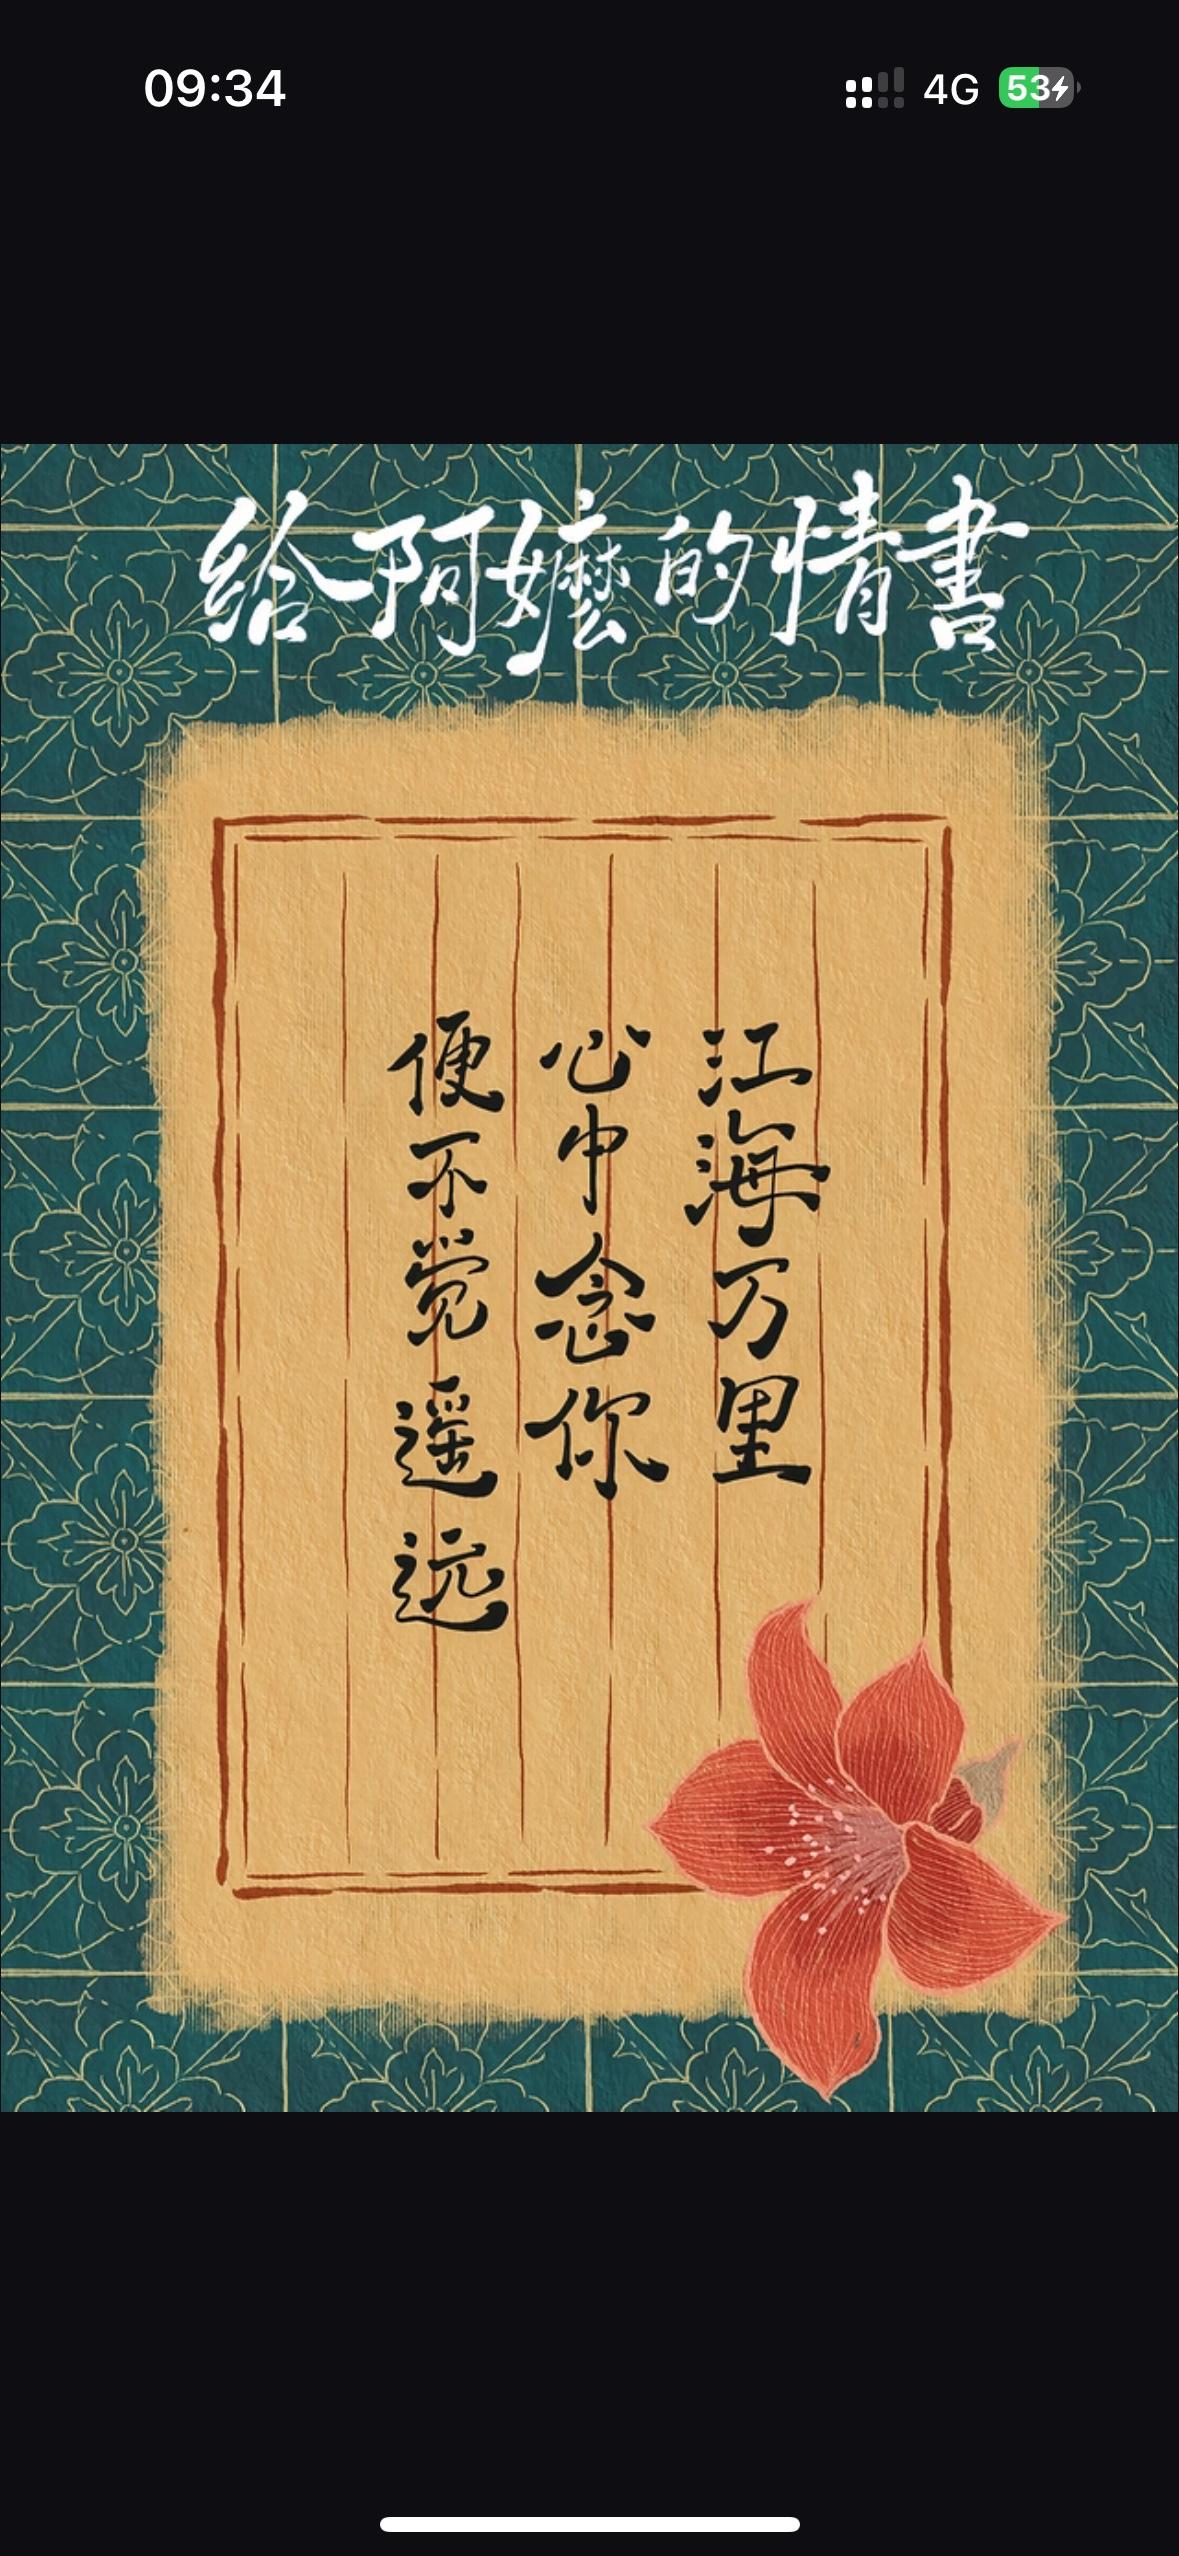 09:34
4G
53
給阿嬤的情書
江海万里
心中念你
便不觉遥远